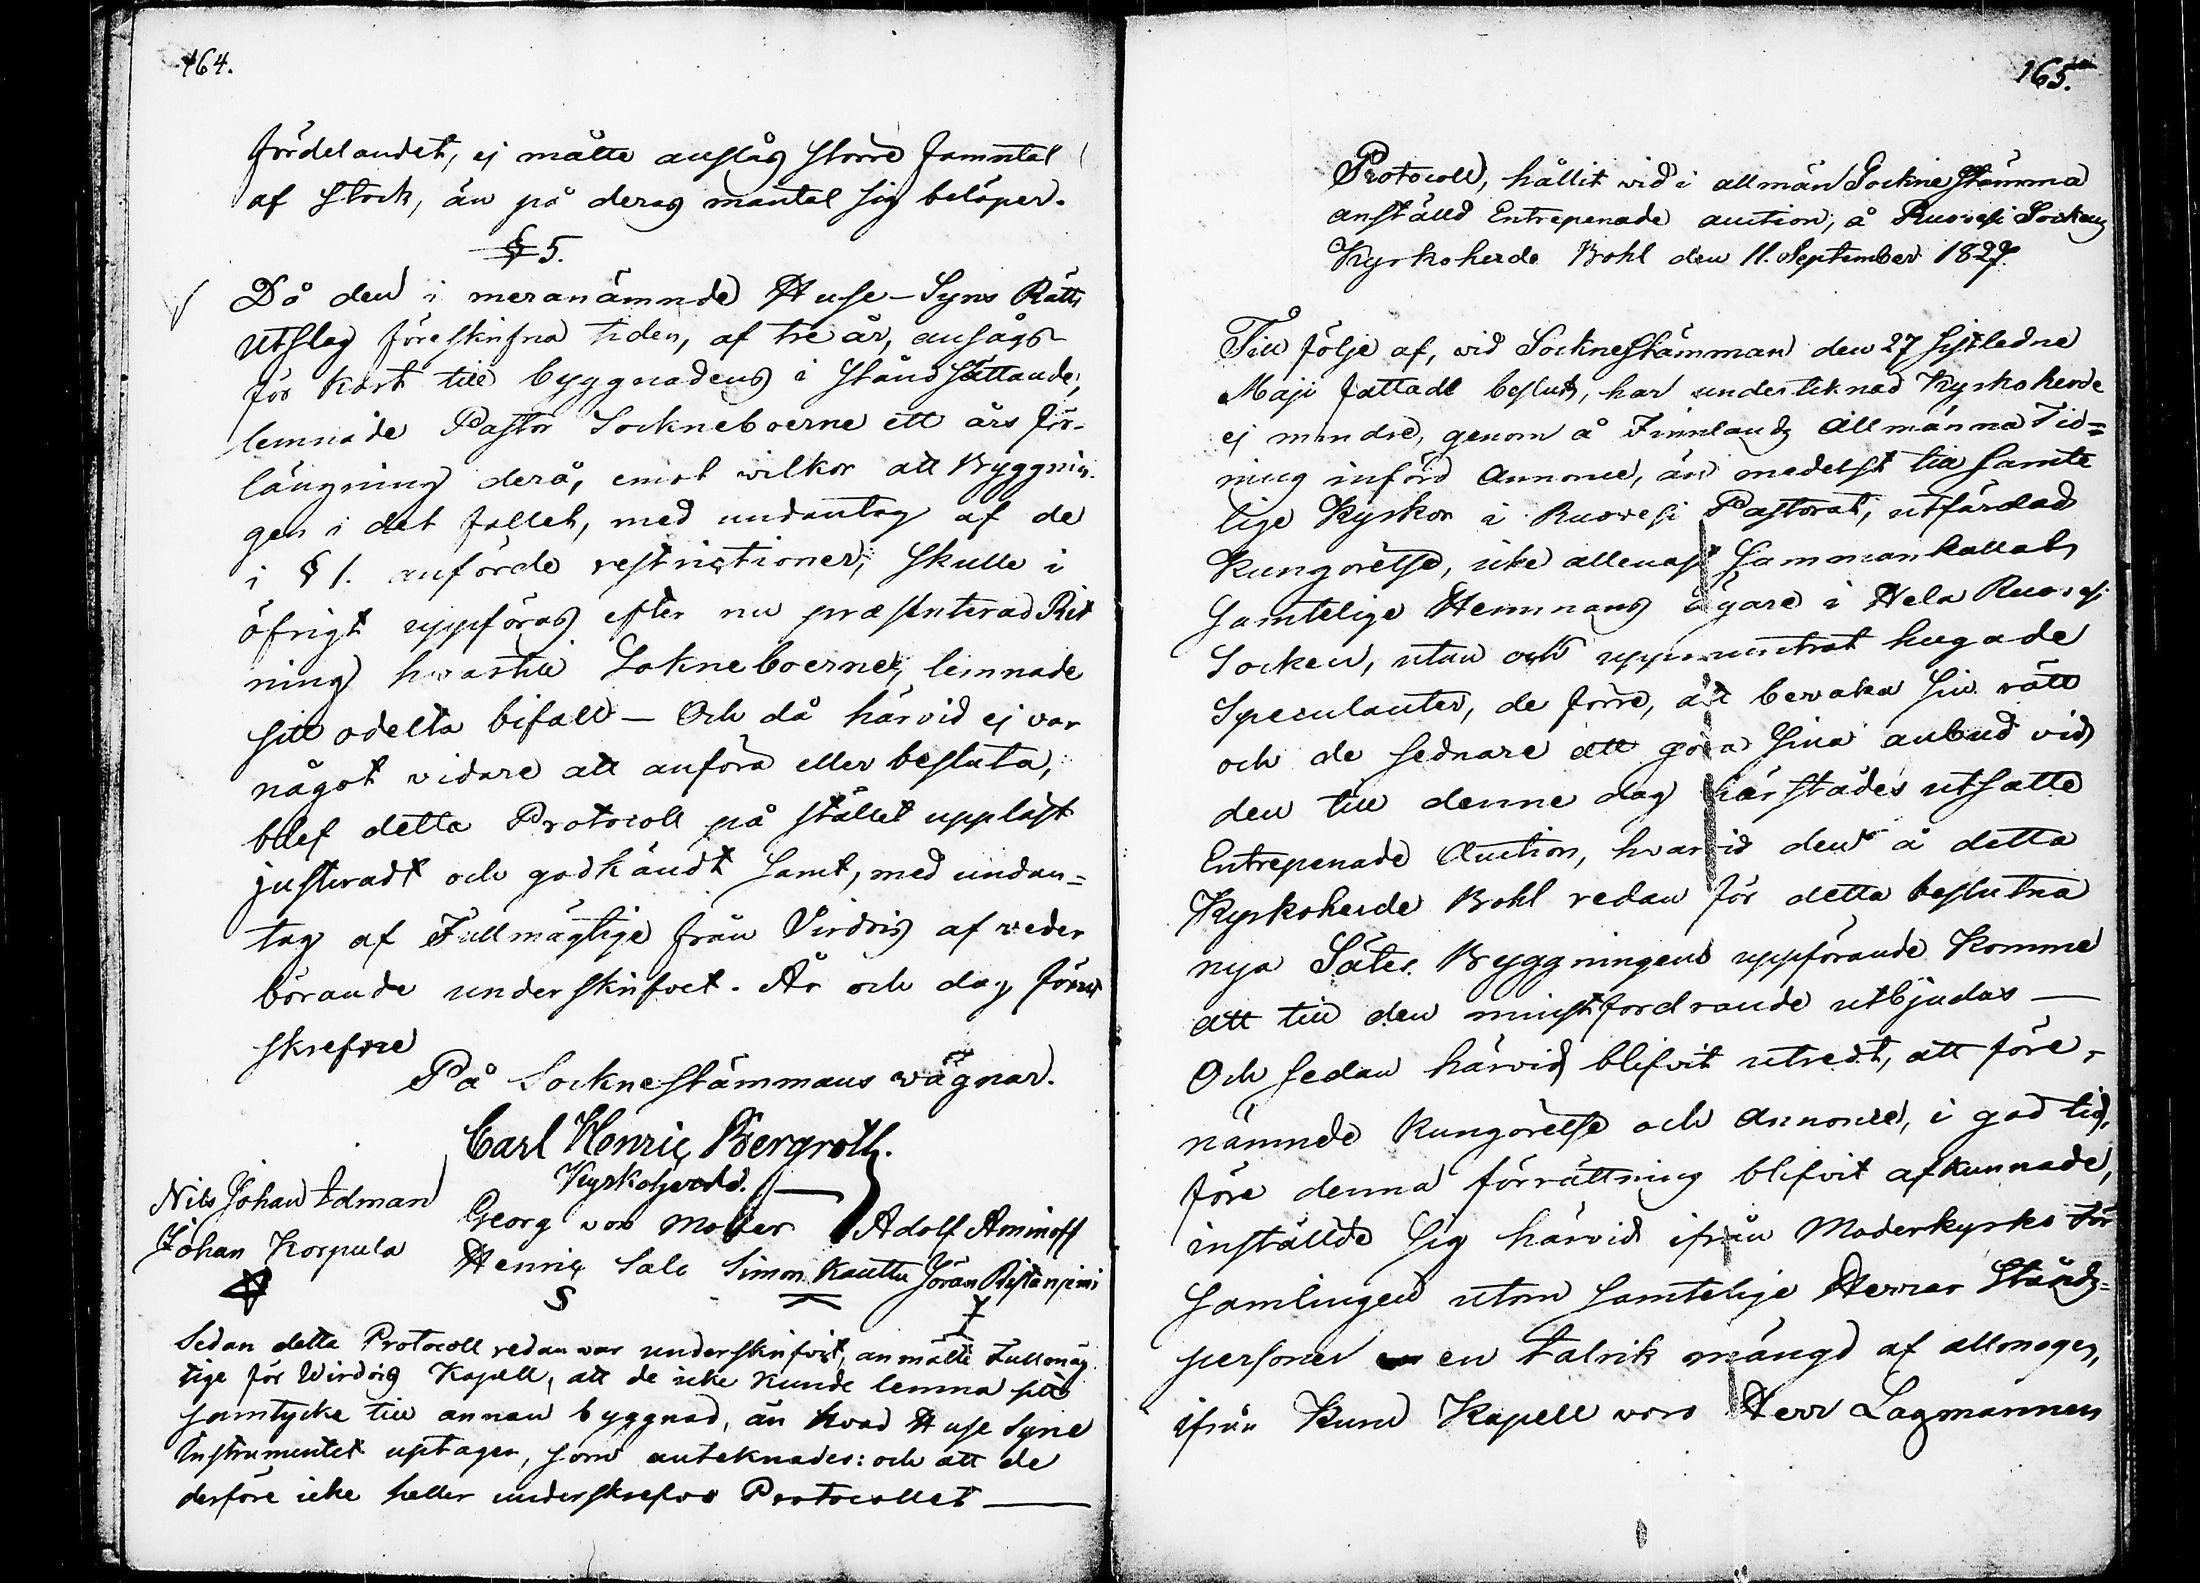 164.
fördelandet, ej måtte anslås större famntal
af stock, än på deras mantal sig belöper.
§ 5.
Då den i meranämnde Huse-Syns Rätts
utslag föreskrifna tiden, af tre år, ansågs
för kort till byggnadens i stånd sättande,
lemnade Pastor Sockneboerne ett års för-
längning derå, emot wilkor att Byggnin-
gen i det fallet, med undantag af de
i § 1. anförde restrictioner, skulle i
öfrigt uppföras efter nu præsenterad Rit
ning hwartill Sokneboerne lemnade
sitt odelta bifall — Och då härvid ej var
något vidare att anföra eller besluta,
blef detta Protocoll på stället uppläst
justeradt och godkändt samt, med undan=
tag af Fullmägtige från Virdois af veder
börande underskrifvet. År och dag förut
skrefne
På Socknestämmans vägnar.
Carl Henric Bergroth.
Kyrkoherde.
Nils Johan Idman
Georg von Moller Adolf Aminoff
Johan Korpula
Henric Salo Simon Kauttu Jöran
S
Sedan detta Protocoll redan war underskrifvit, anmälte Fullmäg
tige för Wirdois Kapell, att de icke kunde lemna sitt
samtycke till annan byggnad, än hvad Huse Syne
Instrumentet uptager, som anteknades: och att de
derföre icke heller underskrefvo Protocollet —
165.
Protocoll, hållit vid i allmän Sockne Stämma
anställd Entrepenade auction, å Ruovesi Sockens
Kyrkoherde Bohl den 11. September 1827.
Till följe af, vid Socknestämman den 27 sistledne
Maji fattade beslut, har undertecknad Kyrkoherde
ej mindre, genom å Finnlands Allmänna Tid=
ning införd Annonce, än medelst till samte
lige Kyrkor i Ruovesi Pastorat, utfärdad
Kungörelse, icke allenast sammankallat
samtelige Hemmans ägare i Hela Ruovesi
Socken, utan och uppmuntrat hugade
Speculanter, de förre, att bevaka sin rätt
och de sednare att göra sina anbud vid
den till denne dag härstädes utsatte
Entrepenade Auction, hvarvid den å detta
Kyrkoherde Bohl redan för detta beslutna
nya Sätes Byggningens uppförande komme
att till den minstfordrande utbjudas —
Och sedan härvid blifvit utredt, att före-
nämnde Kungörelse och Annonce, i god tid,
före denna förrättning blifvit afkunnade,
inställde sig härvid ifrån Moderkyrko för
samlingen utom samtelige Herrar Stånds=
personer en talrik mängd af allmogen,
ifrån Kuru Kapell voro Herr Lagmannen